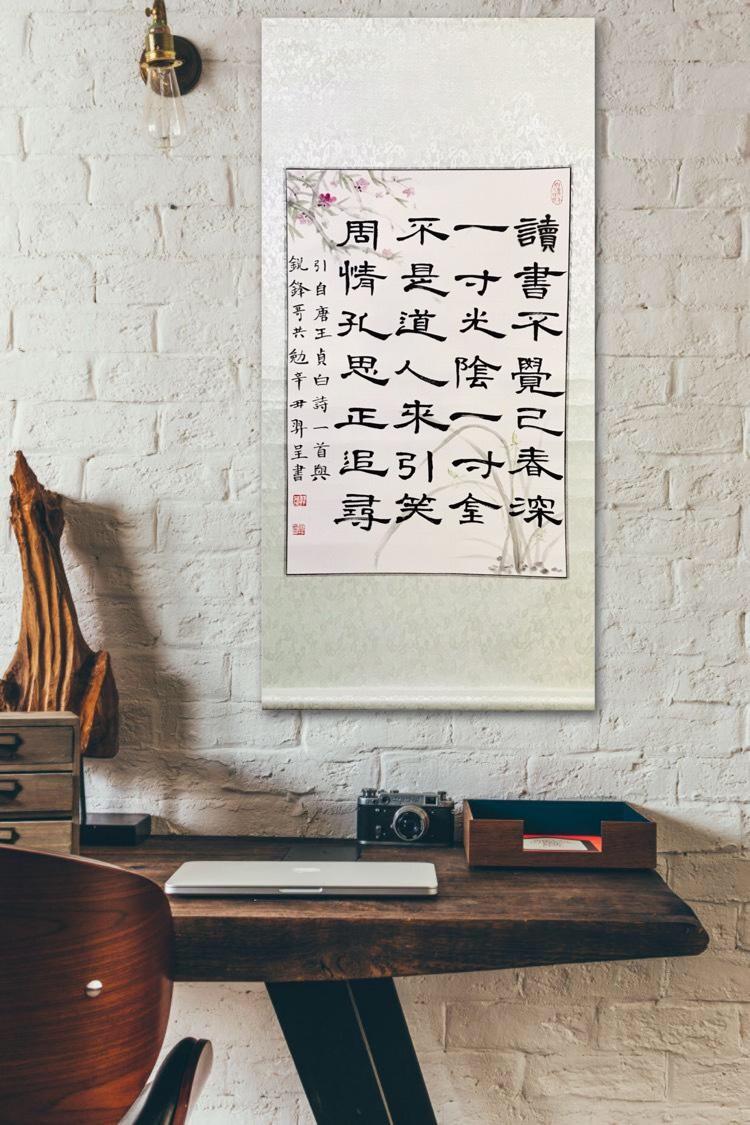 讀書不覺已春深
一寸光陰一寸金
不是道人來引笑
周情孔思正追尋
引自唐王貞白詩一首與
鋭鋒哥共勉辛丑羿呈書